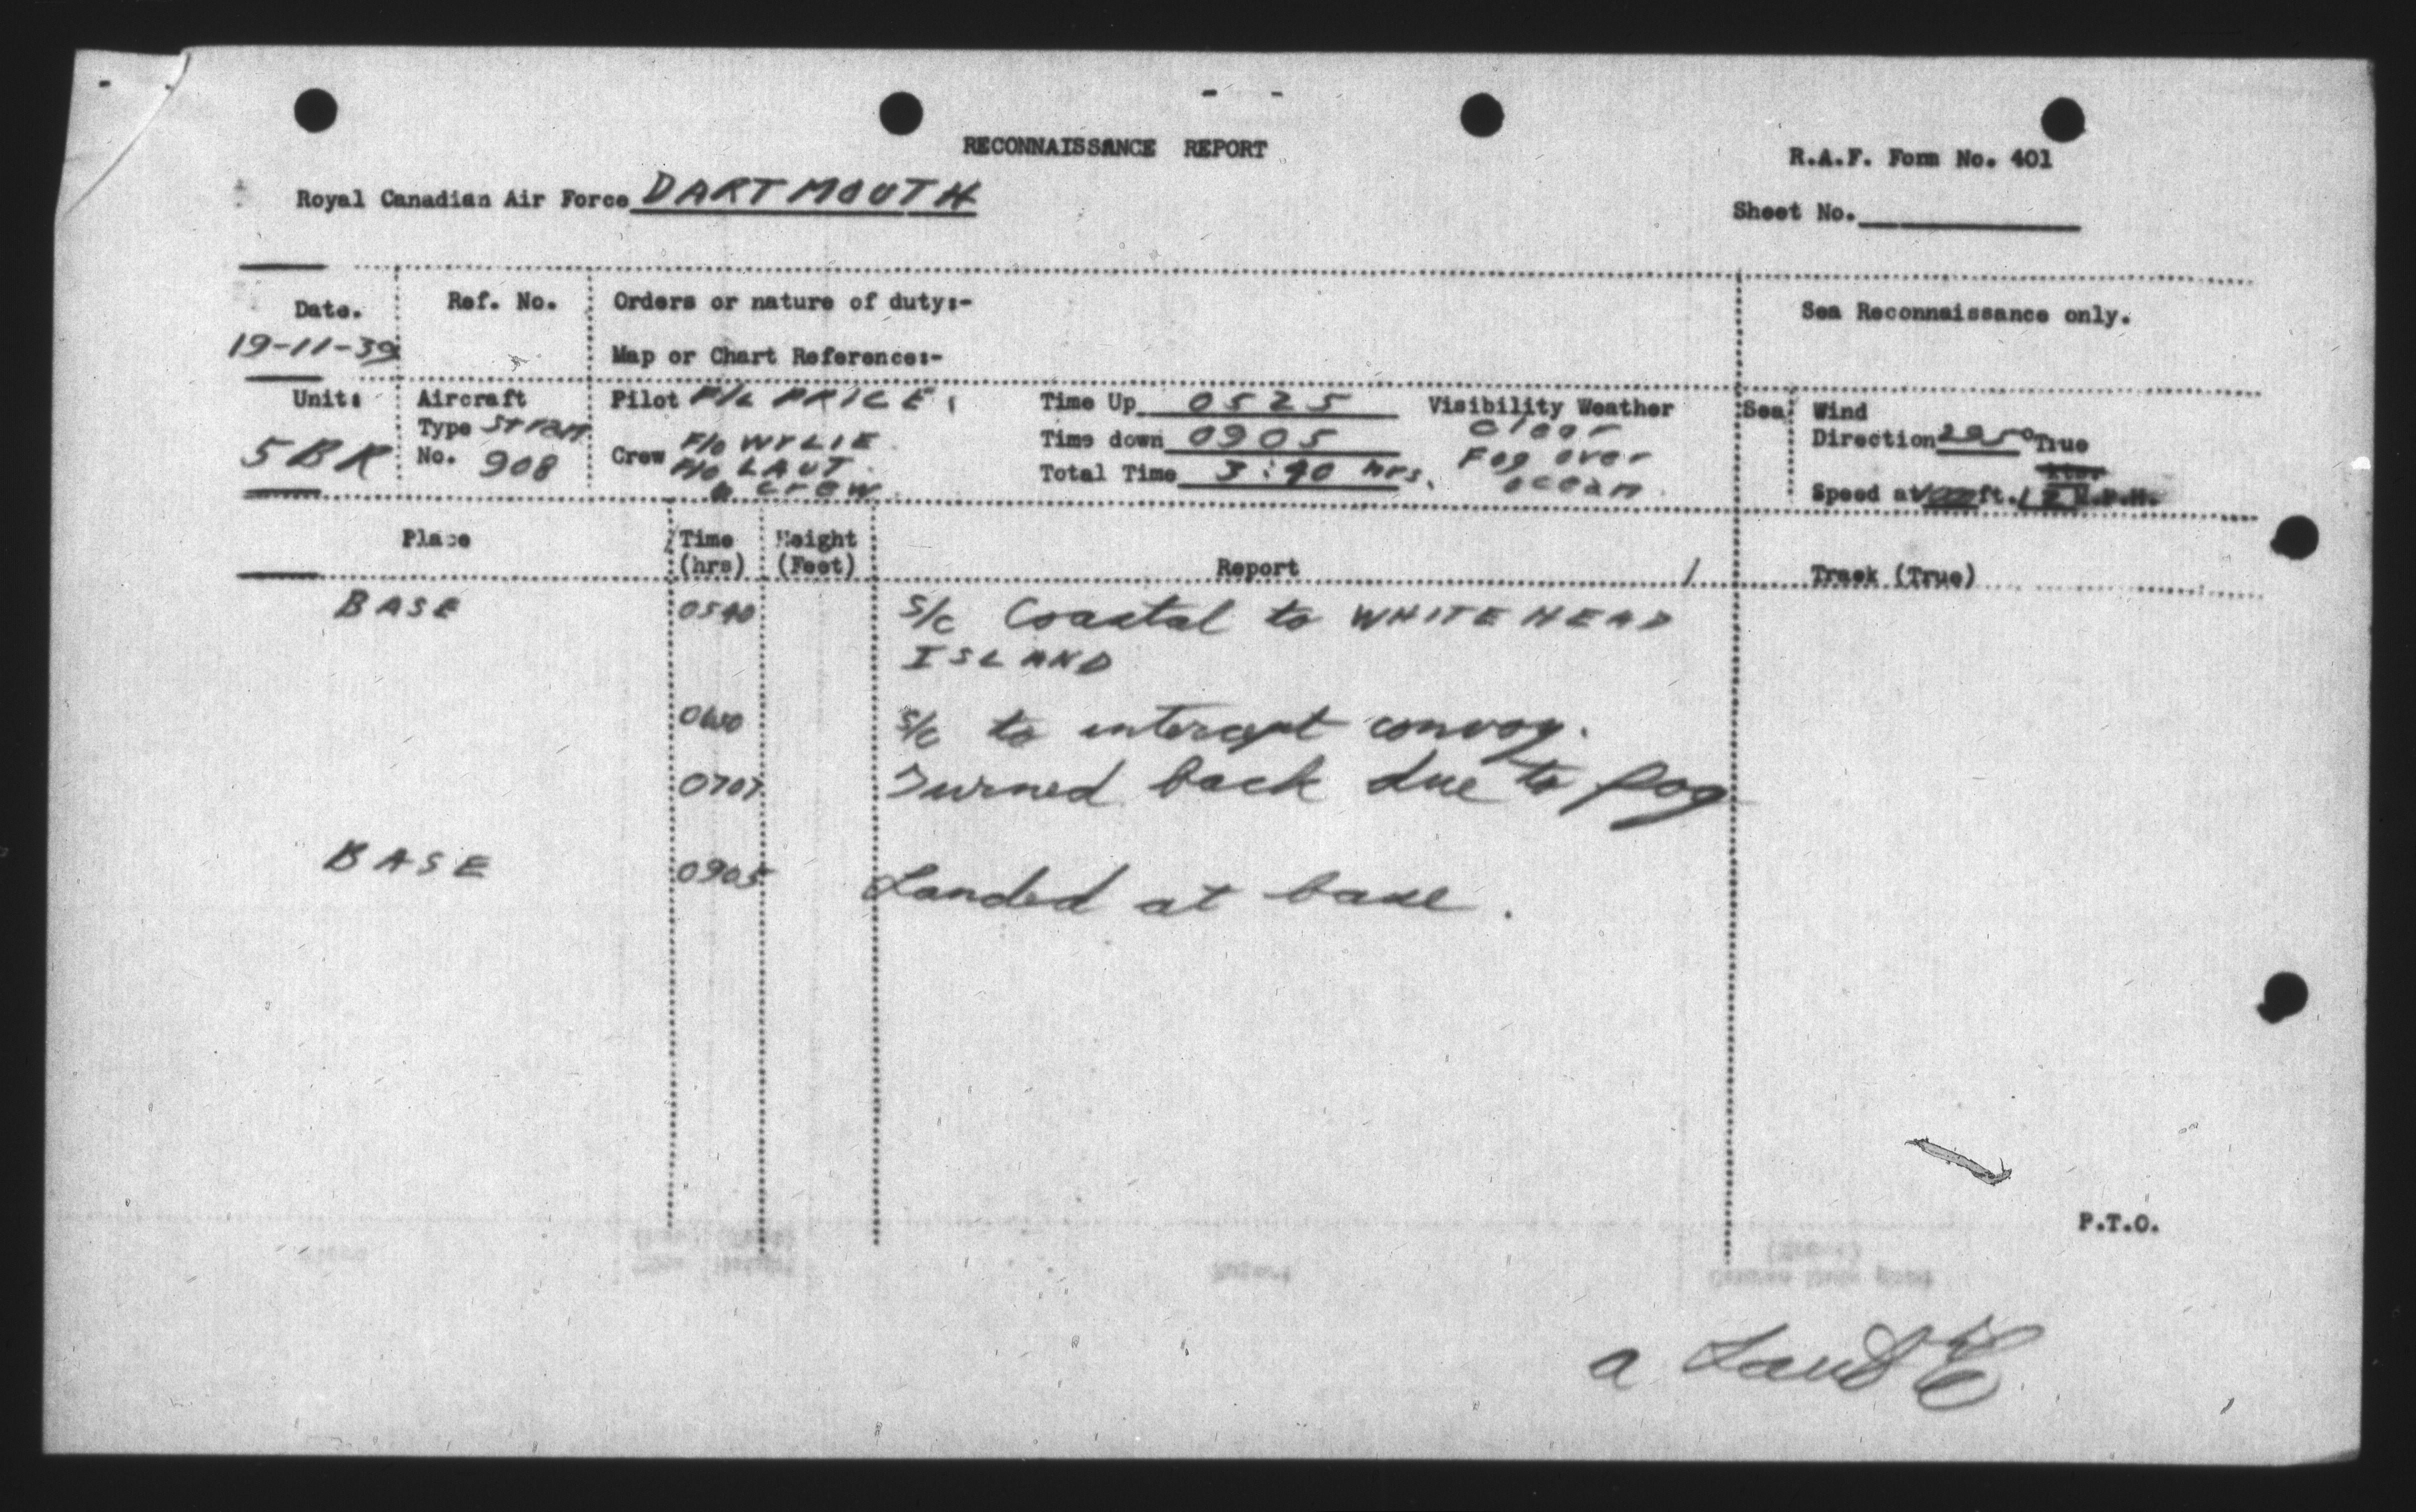 RECONNAISSANCE REPORT
R.A.F. Form No. 401
Royal Canadian Air Force DARTMOUTH
Sheet No.
Date. Ref. No. Orders or nature of duty:- Sea Reconnaissance only.
19-11-39
Map or Chart Reference:-
Unit: Aircraft Pilot F/L PRICE Time Up 0525 Visibility Weather Sea Wind
Type STRAN F/O WYLIE Time down 0905 Clear Direction 225° True
5 BR No. 908 Crew P/O LAUT Total Time 3:40 hrs. Fog over
& CREW ocean Speed at ft. 12 M.P.H.
Place Time Height
(hrs) (Feet) Report Track (True)
BASE 0540 S/C Coastal to WHITEHEAD
ISLAND
S/C to intercept convoy.
0707 Turned back due to fog
BASE 0905 Landed at base.
P.T.O.